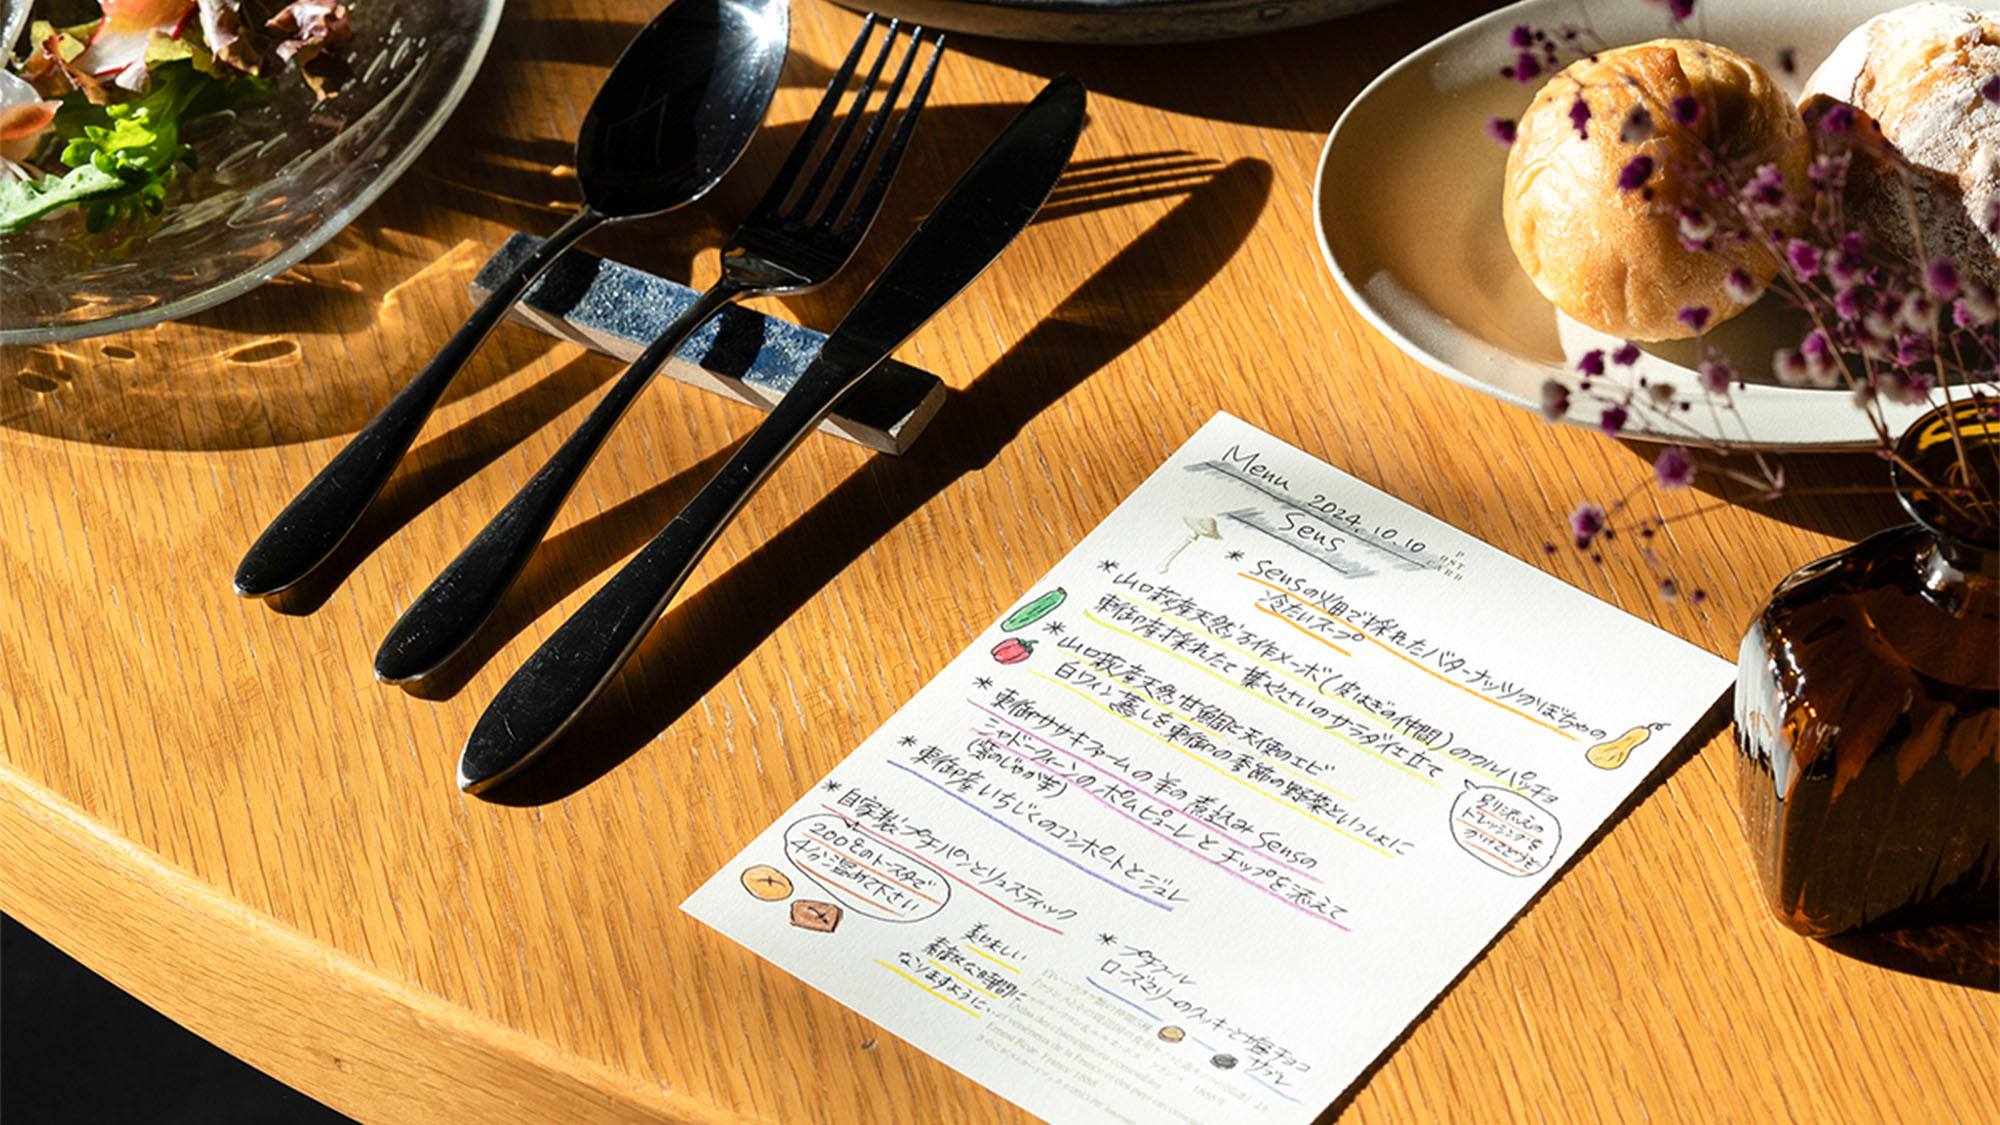 Menu 2024.10.10
Sens
POSTCARD
* Sensの畑で採れたバターナッツかぼちゃの
冷たいスープ
* 山口萩産天然万作メーボ(皮はぎの仲間)のカルパッチョ
東御産採れたて葉やさいのサラダ仕立て
* 山口萩産天然甘鯛と天使のエビ
白ワイン蒸しを東御の季節の野菜といっしょに
* 東御ササキファームの羊の煮込みSensの
シャドークィーンのポムピューレとチップを添えて
(紫のじゃが芋)
* 東御産いちじくのコンポートとジュレ
* 自家製プチパンとリュスティック
200℃のトースターで
4分温めて下さい
別添えの
ドレッシングを
かけてどうぞ
* プチフール
ローズマリーのクッキーと塩チョコ
サブレ
美味しい
素敵な時間に
なりますように..